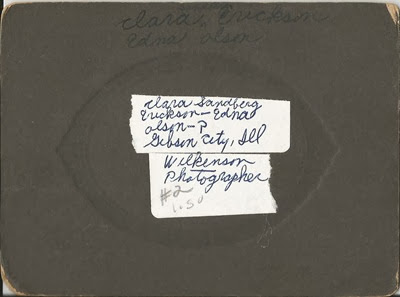 Clara Erickson
Edna Olson
Clara Sandberg
Erickson - Edna
Olson - P
Gibson City, Ill
Wilkenson
Photographer
#2
1.50